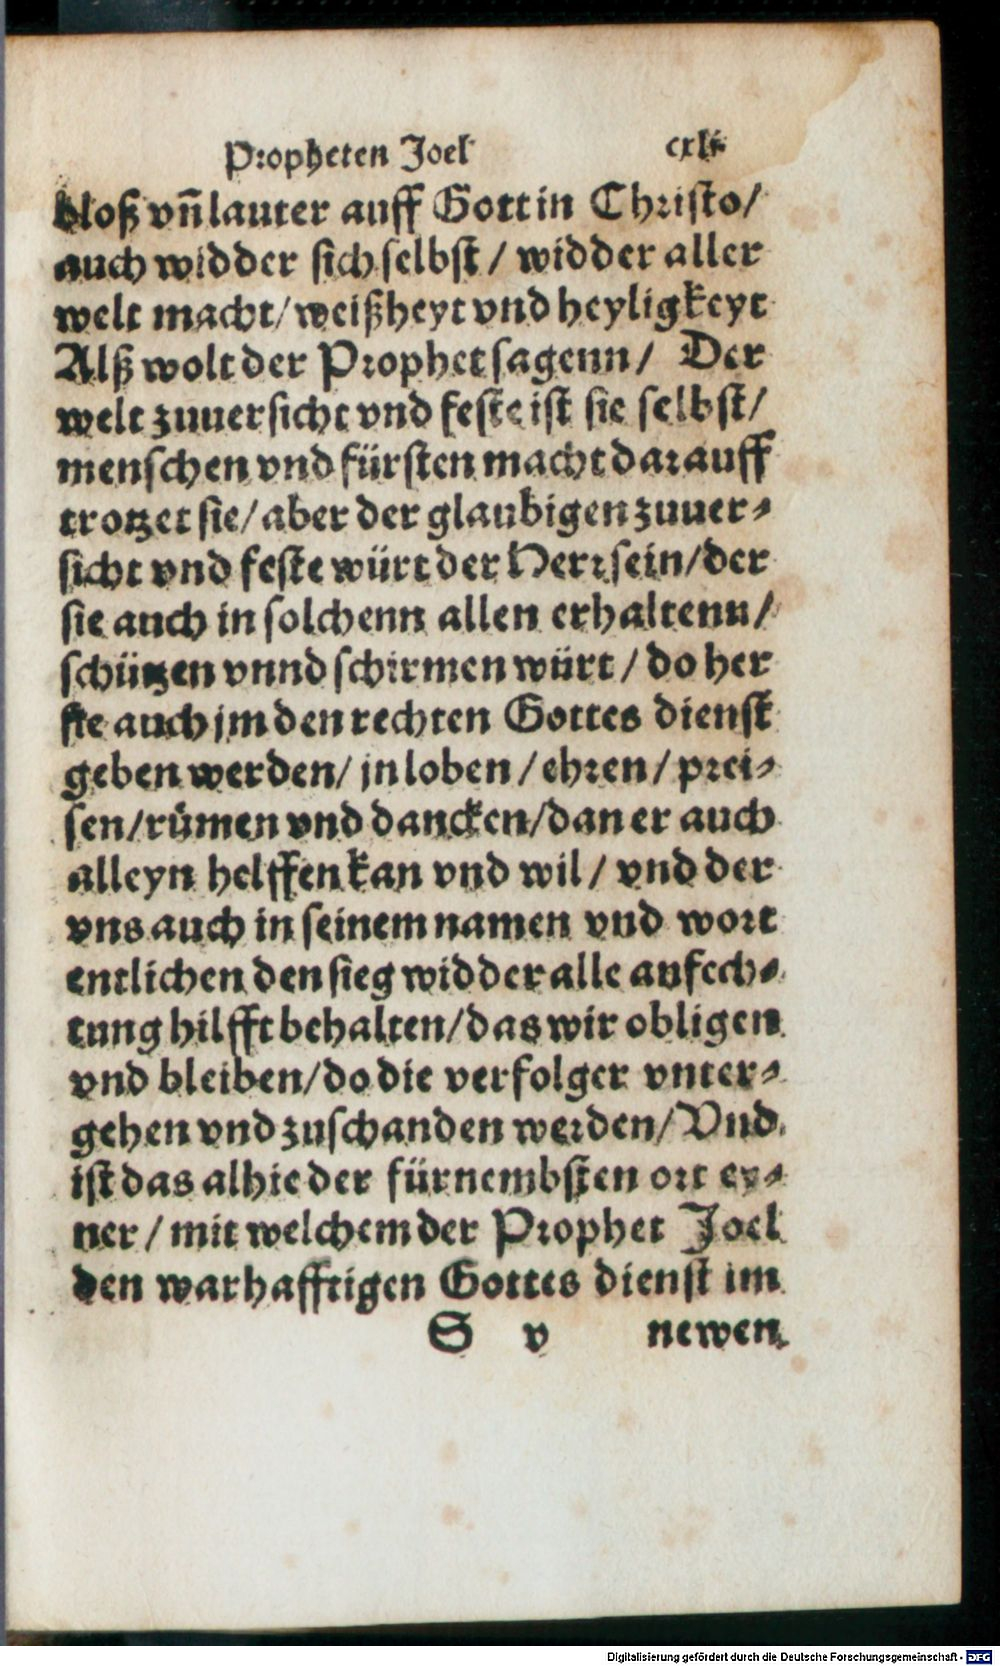 Propheten Joel cxli
bloß vñ lauter auff Gott in Christo/
auch widder sich selbst / widder aller
welt macht/ weißheyt vnd heyligkeyt
Alß wolt der Prophet sagenn/ Der
welt zuuersicht vnd feste ist sie selbst/
menschen vnd fürsten macht darauff
trotzet sie/ aber der glaubigen zuuer⸗
sicht vnd feste würt der Herr sein/ der
sie auch in solchenn allen erhaltenn/
schützen vnnd schirmen würt / do her
sie auch jm den rechten Gottes dienst
geben werden/ jn loben / ehren / prei⸗
sen/ rümen vnd dancken/ dan er auch
alleyn helffen kan vnd wil / vnd der
vns auch in seinem namen vnd wort
entlichen den sieg widder alle anfech⸗
tung hilfft behalten/ das wir obligen
vnd bleiben/ do die verfolger vnter⸗
gehen vnd zuschanden werden/ Vnd
ist das alhie der fürnembsten ort ey⸗
ner / mit welchem der Prophet Joel
den warhafftigen Gottes dienst im
S v newen
Digitalisierung gefördert durch die Deutsche Forschungsgemeinschaft - DFG